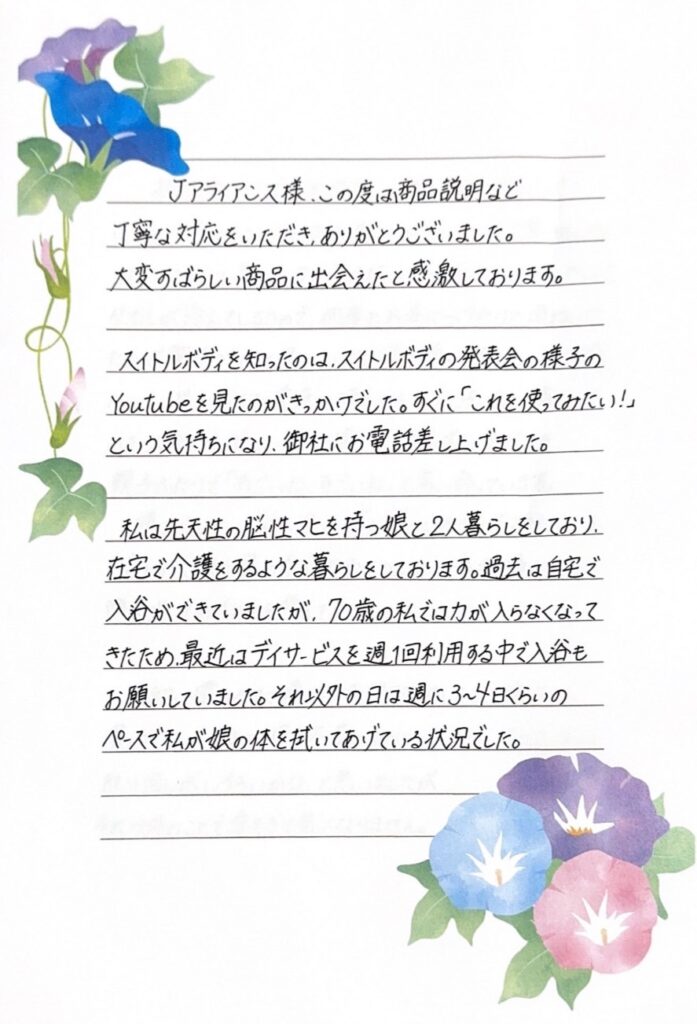 Jアライアンス様、この度は商品説明など
丁寧な対応をいただき、ありがとうございました。
大変すばらしい商品に出会えたと感激しております。
スイトルボディを知ったのは、スイトルボディの発表会の様子の
Youtubeを見たのがきっかけでした。すぐに「これを使ってみたい!」
という気持ちになり、御社にお電話差し上げました。
私は先天性の脳性マヒを持つ娘と2人暮らしをしており、
在宅で介護をするような暮らしをしております。過去は自宅で
入浴ができていましたが、70歳の私では力が入らなくなって
きたため、最近はデイサービスを週1回利用する中で入浴も
お願いしていました。それ以外の日は週に3~4日くらいの
ペースで私が娘の体を拭いてあげている状況でした。